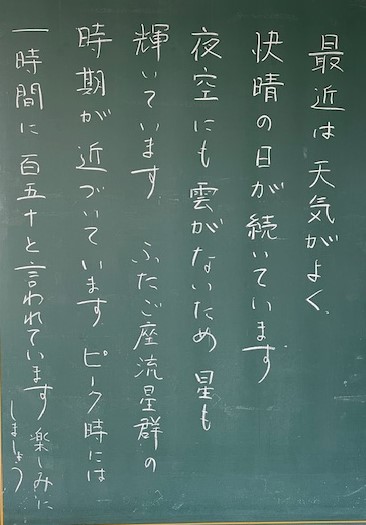 最近は天気がよく、
快晴の日が続いています。
夜空にも雲がないため星も
輝いています ふたご座流星群の
時期が近づいています ピーク時には
一時間に百五十と言われています 楽しみに
しましょう